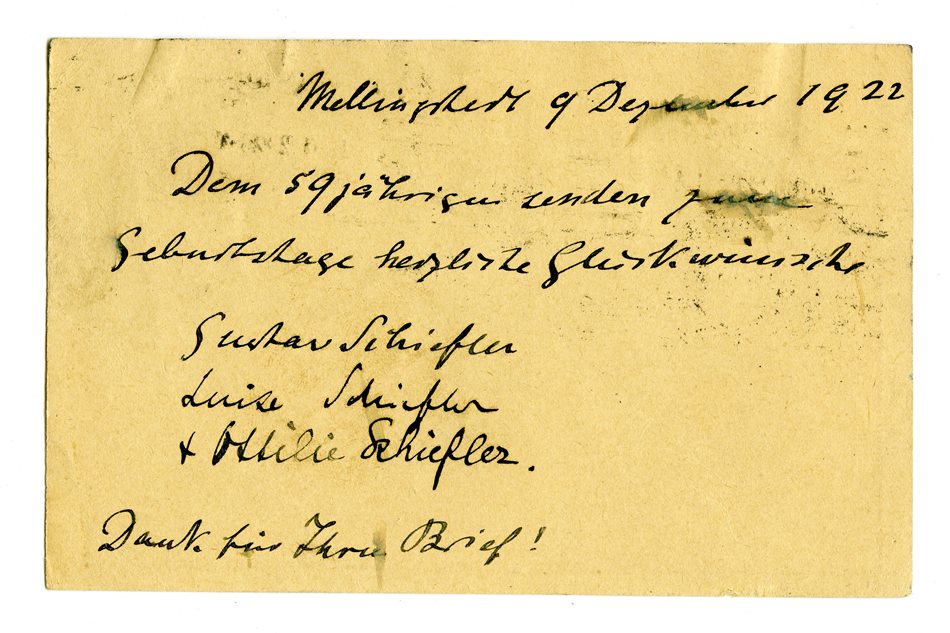 Mellingstedt 9 Dezember 1922
Dem 59jährigen senden zum
Geburtstage herzliche Glückwünsche
Gustav Schiefler
Luise Schiefler
+ Ottilie Schiefler.
Dank für Ihren Brief!